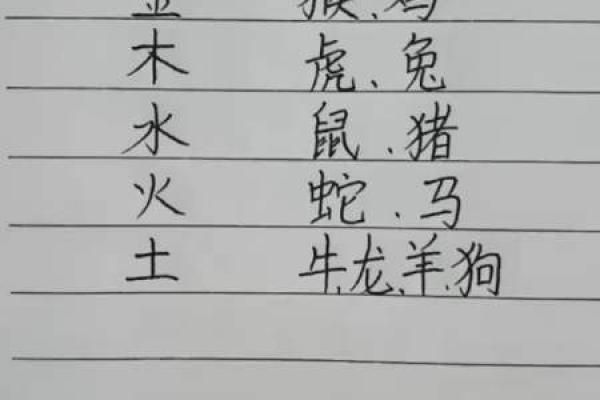 金 猴、鸡
木 虎、兔
水 鼠、猪
火 蛇、马
土 牛、龙、羊、狗